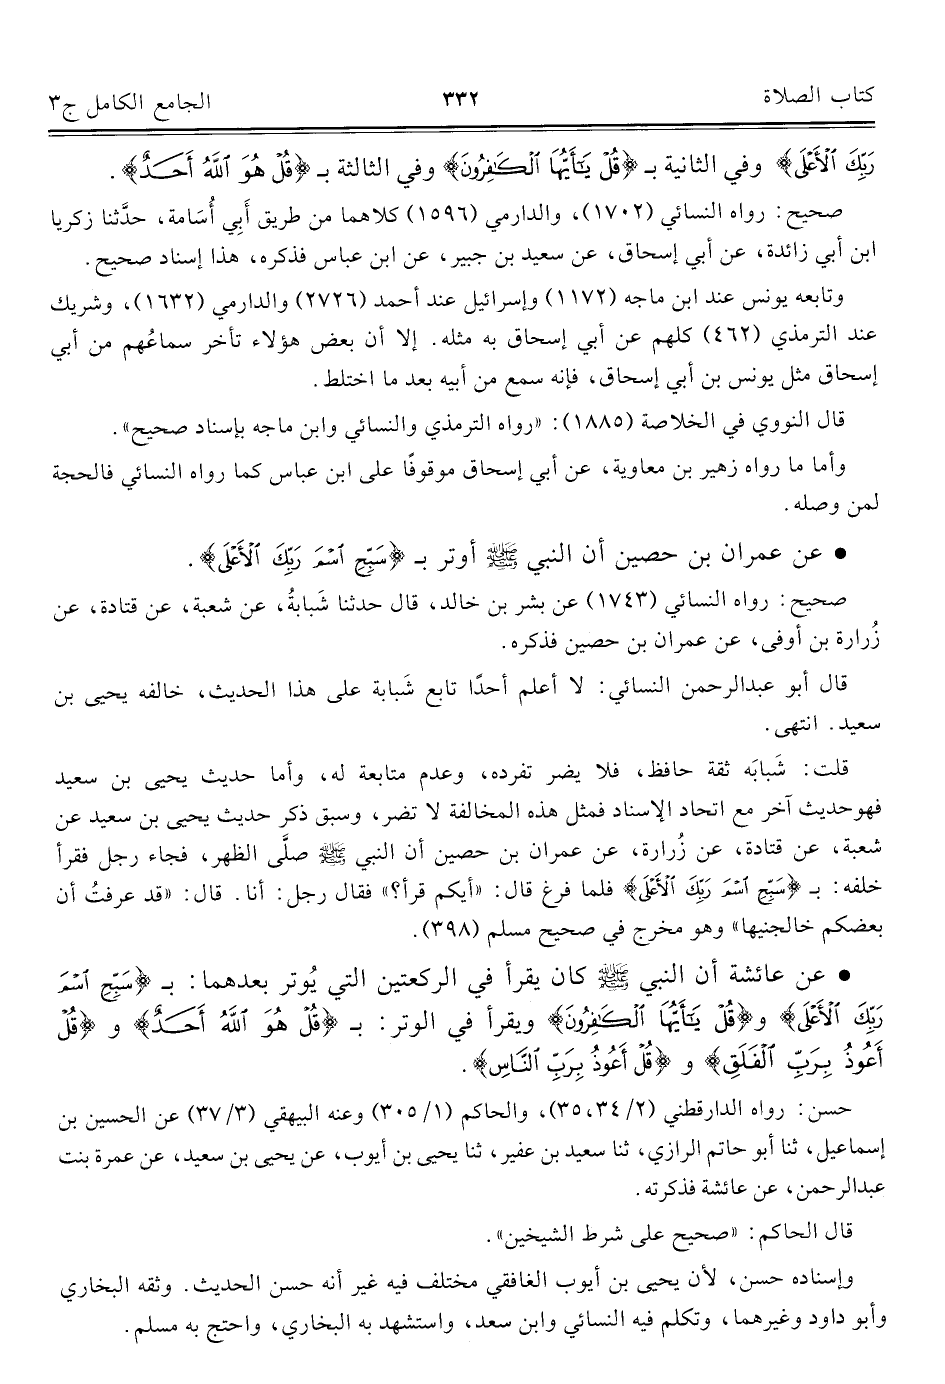 كتاب الصلاة ٣٣٢ الجامع الكامل ج٣
رَبِّكَ ٱلْأَعْلَى﴾ وفي الثانية بـ ﴿قُلْ يَٰٓأَيُّهَا ٱلْكَٰفِرُونَ﴾ وفي الثالثة بـ ﴿قُلْ هُوَ ٱللَّهُ أَحَدٌ﴾.
صحيح: رواه النسائي (١٧٠٢)، والدارمي (١٥٩٦) كلاهما من طريق أَبِي أُسَامة، حدَّثنا زكريا
ابن أبي زائدة، عن أبي إسحاق، عن سعيد بن جبير، عن ابن عباس فذكره، هذا إسناد صحيح.
وتابعه يونس عند ابن ماجه (١١٧٢) وإسرائيل عند أحمد (٢٧٢٦) والدارمي (١٦٣٢)، وشريك
عند الترمذي (٤٦٢) كلهم عن أبي إسحاق به مثله. إلا أن بعض هؤلاء تأخر سماعُهم من أبي
إسحاق مثل يونس بن أبي إسحاق، فإنه سمع من أبيه بعد ما اختلط.
قال النووي في الخلاصة (١٨٨٥): «رواه الترمذي والنسائي وابن ماجه بإسناد صحيح».
وأما ما رواه زهير بن معاوية، عن أبي إسحاق موقوفًا على ابن عباس كما رواه النسائي فالحجة
لمن وصله.
• عن عمران بن حصين أن النبي ﷺ أوتر بـ ﴿سَبِّحِ ٱسْمَ رَبِّكَ ٱلْأَعْلَى﴾.
صحيح: رواه النسائي (١٧٤٣) عن بشر بن خالد، قال حدثنا شَبابةُ، عن شعبة، عن قتادة، عن
زُرارة بن أوفى، عن عمران بن حصين فذكره.
قال أبو عبدالرحمن النسائي: لا أعلم أحدًا تابع شَبابة على هذا الحديث، خالفه يحيى بن
سعيد. انتهى.
قلت: شَبابَه ثقة حافظ، فلا يضر تفرده، وعدم متابعة له، وأما حديث يحيى بن سعيد
فهوحديث آخر مع اتحاد الإسناد فمثل هذه المخالفة لا تضر، وسبق ذكر حديث يحيى بن سعيد عن
شعبة، عن قتادة، عن زُرارة، عن عمران بن حصين أن النبي ﷺ صلَّى الظهر، فجاء رجل فقرأ
خلفه: بـ ﴿سَبِّحِ ٱسْمَ رَبِّكَ ٱلْأَعْلَى﴾ فلما فرغ قال: «أيكم قرأ؟» فقال رجل: أنا. قال: «قد عرفتُ أن
بعضكم خالجنيها» وهو مخرج في صحيح مسلم (٣٩٨).
• عن عائشة أن النبي ﷺ كان يقرأ في الركعتين التي يُوتر بعدهما: بـ ﴿سَبِّحِ ٱسْمَ
رَبِّكَ ٱلْأَعْلَى﴾ و﴿قُلْ يَٰٓأَيُّهَا ٱلْكَٰفِرُونَ﴾ ويقرأ في الوتر: بـ ﴿قُلْ هُوَ ٱللَّهُ أَحَدٌ﴾ و ﴿قُلْ
أَعُوذُ بِرَبِّ ٱلْفَلَقِ﴾ و ﴿قُلْ أَعُوذُ بِرَبِّ ٱلنَّاسِ﴾.
حسن: رواه الدارقطني (٢/ ٣٤، ٣٥)، والحاكم (١/ ٣٠٥) وعنه البيهقي (٣/ ٣٧) عن الحسين بن
إسماعيل، ثنا أبو حاتم الرازي، ثنا سعيد بن عفير، ثنا يحيى بن أيوب، عن يحيى بن سعيد، عن عمرة بنت
عبدالرحمن، عن عائشة فذكرته.
قال الحاكم: «صحيح على شرط الشيخين».
وإسناده حسن، لأن يحيى بن أيوب الغافقي مختلف فيه غير أنه حسن الحديث. وثقه البخاري
وأبو داود وغيرهما، وتكلم فيه النسائي وابن سعد، واستشهد به البخاري، واحتج به مسلم.